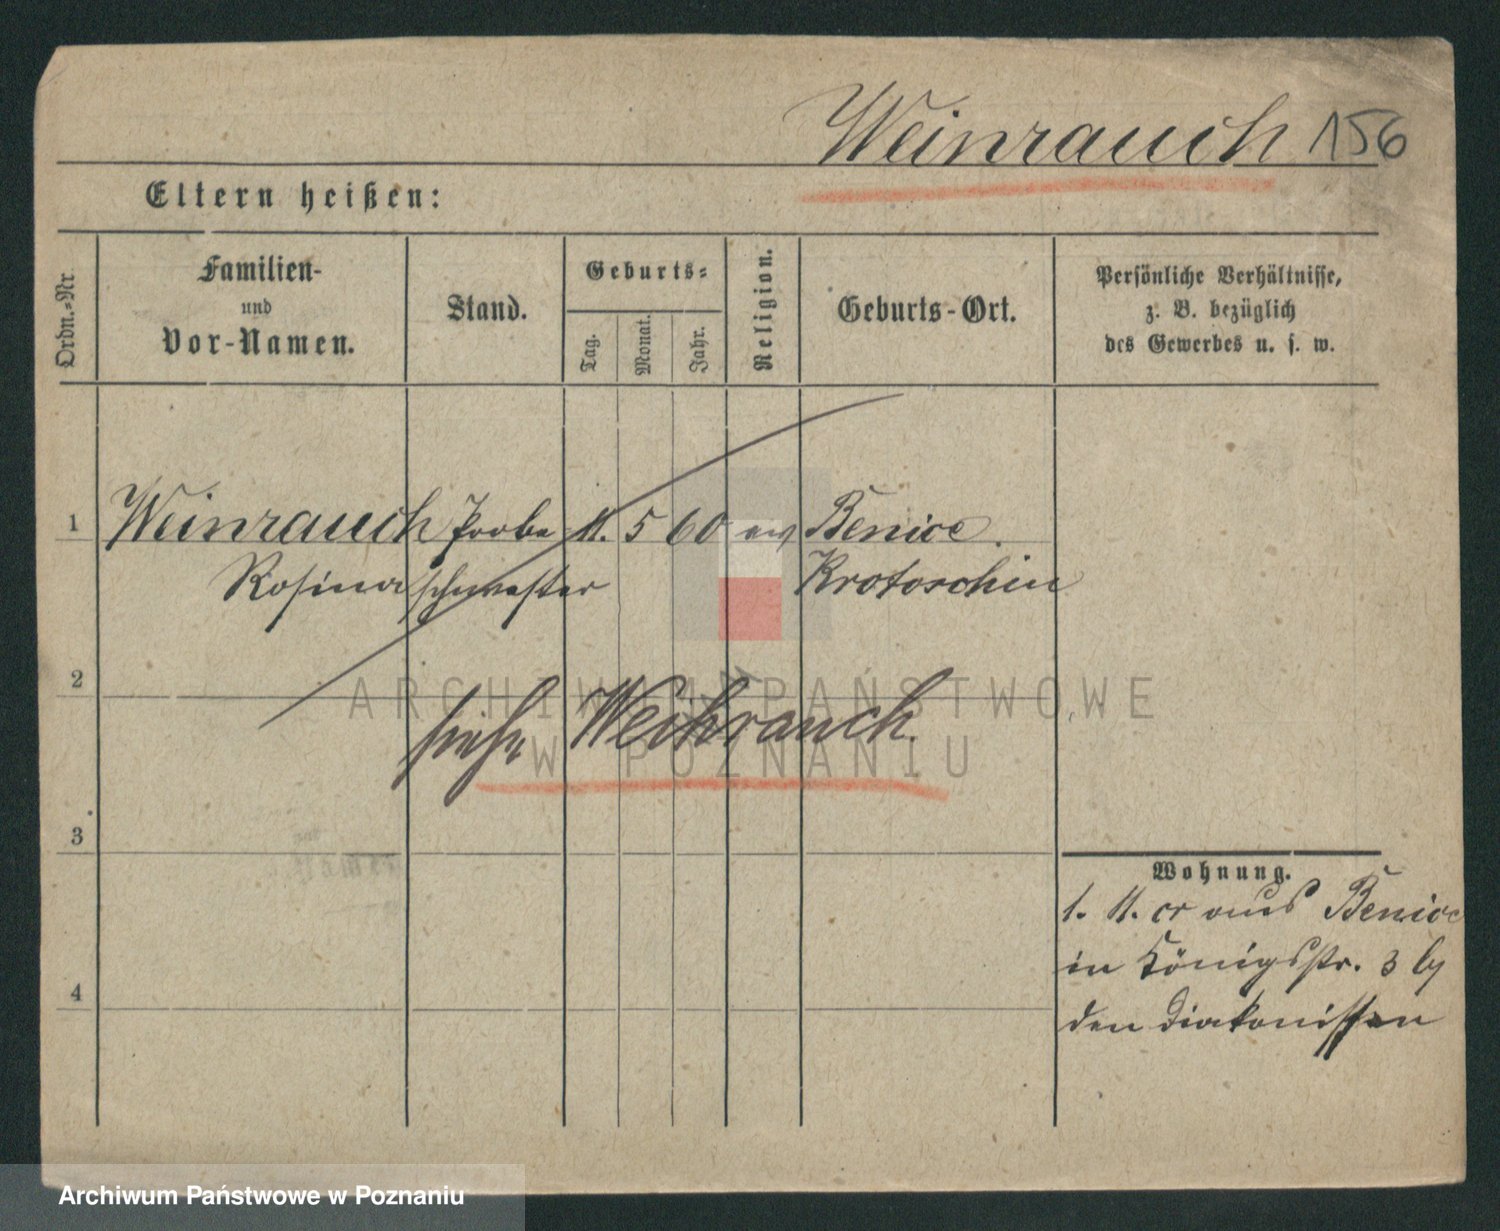 Weinrauch 156
Eltern heißen:
Ordn.-Nr.
Familien-
und
Vor-Namen.
Stand.
Geburts-
Tag.
Monat.
Jahr.
Religion.
Geburts-Ort.
Persönliche Verhältnisse,
z. B. bezüglich
des Gewerbes u. s. w.
1 Weinrauch Probe 11. 5 60 ev Benice.
Rosina schwester Krotoschin
2
siehe Weihrauch.
3
4
Wohnung.
1. 11. cr aus Benice
in Königsstr. 3 by
den Diakonissen
ARCHIWUM PAŃSTWOWE
W POZNANIU
Archiwum Państwowe w Poznaniu